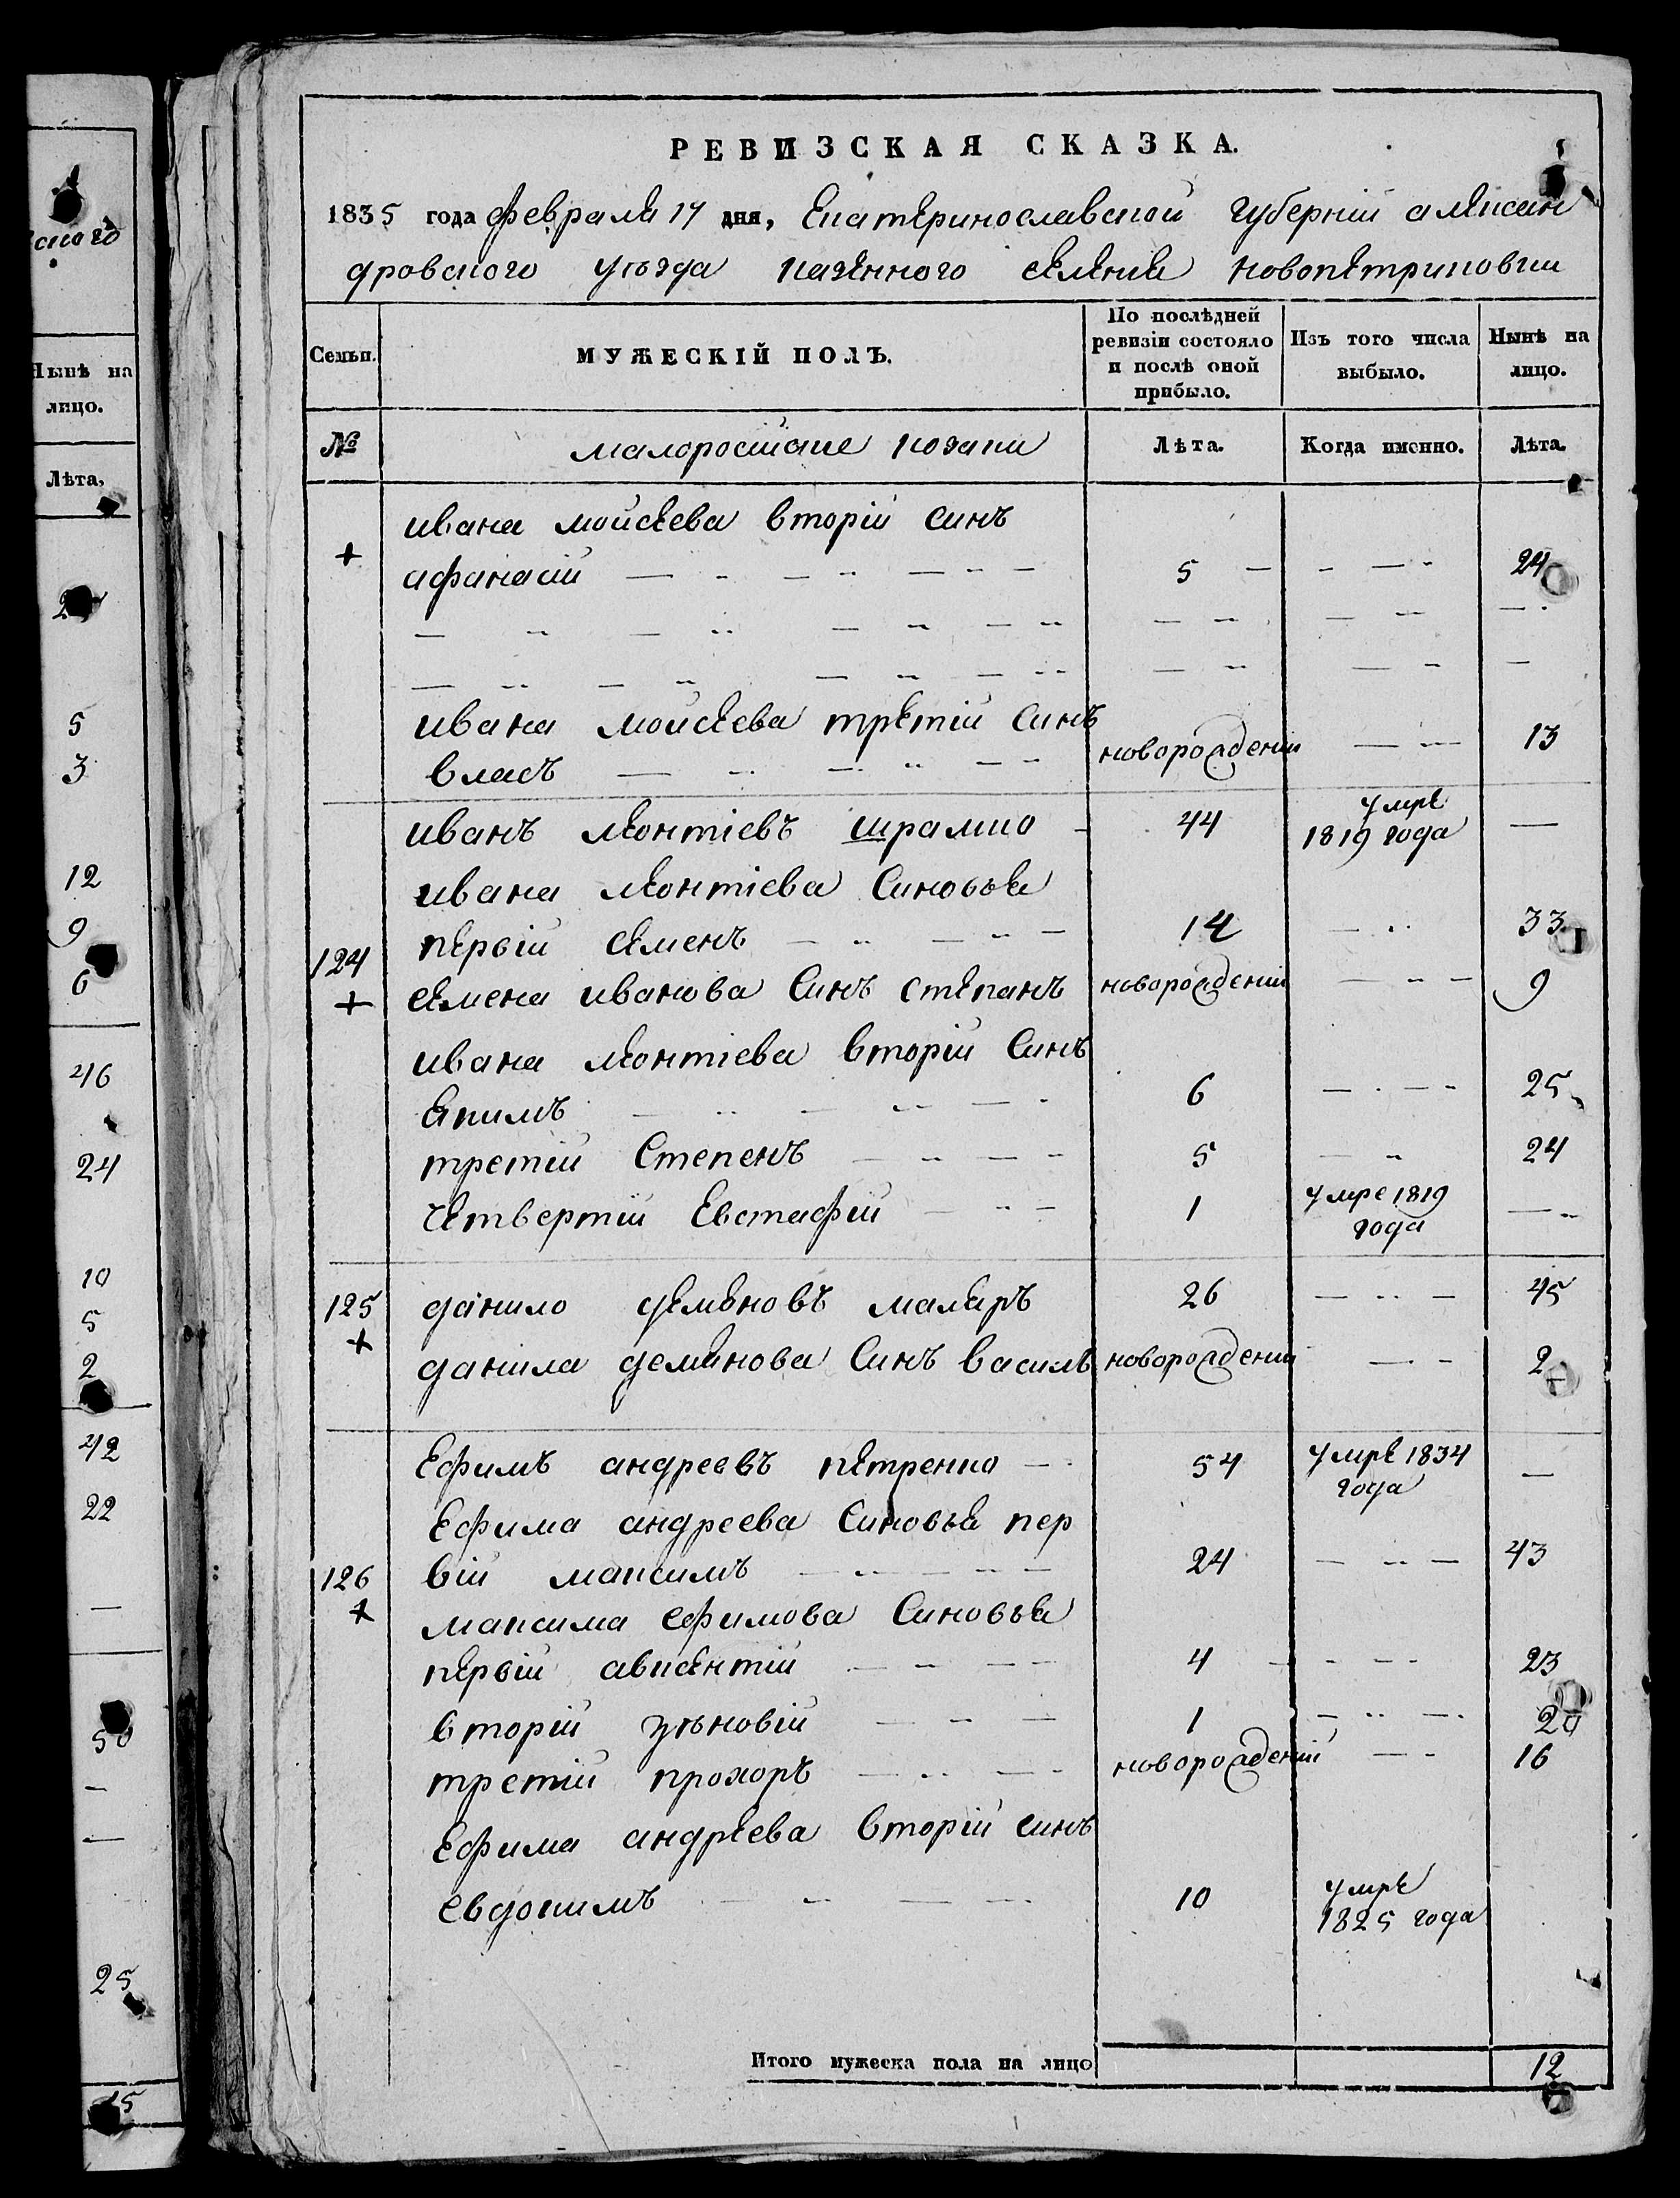 скаго
Нынѣ на
лицо.
Лѣта,
5
3
12
9
6
46
24
10
5
2
42
22
50
25
РЕВИЗСКАЯ СКАЗКА.
1835 года февраля 17 дня, Екатеринославской губернiй алексан
дровского уѣзда казенного селенiя новопетриковки
Семьи. МУЖЕСКІЙ ПОЛЪ. По послѣдней ревизіи состояло и послѣ оной прибыло. Изъ того числа выбыло. Нынѣ на лицо.
№ малоросiйскiе козаки Лѣта. Когда именно. Лѣта.
ивана мойсеева вторiй синъ
+ афанасiй 5 24
ивана мойсеева третiй синъ
власъ новорожденiй 13
иванъ леонтiевъ шрамко 44 умре 1819 года —
ивана леонтiева синовья
124 первiй семенъ 14 33
+ семена иванова синъ степанъ новорожденiй 9
ивана леонтiева вторiй синъ
екимъ 6 25
третiй Степенъ 5 24
четвертiй Евстафiй 1 умре 1819 года —
125 данило деменовъ маляръ 26 45
+ данила деменова синъ василь новорожденiй 2
Ефимъ андреевъ петренко 54 умре 1834 года —
Ефима андреева синовья пер
126 вiй максимъ 24 43
+ максима ефимова синовья
первiй авксентiй 4 23
вторiй зѣновiй 1 20
третiй прохоръ новорожденiй 16
Ефима андреева вторiй синъ
евдокимъ 10 умре 1825 года
Итого мужеска пола на лицо 12